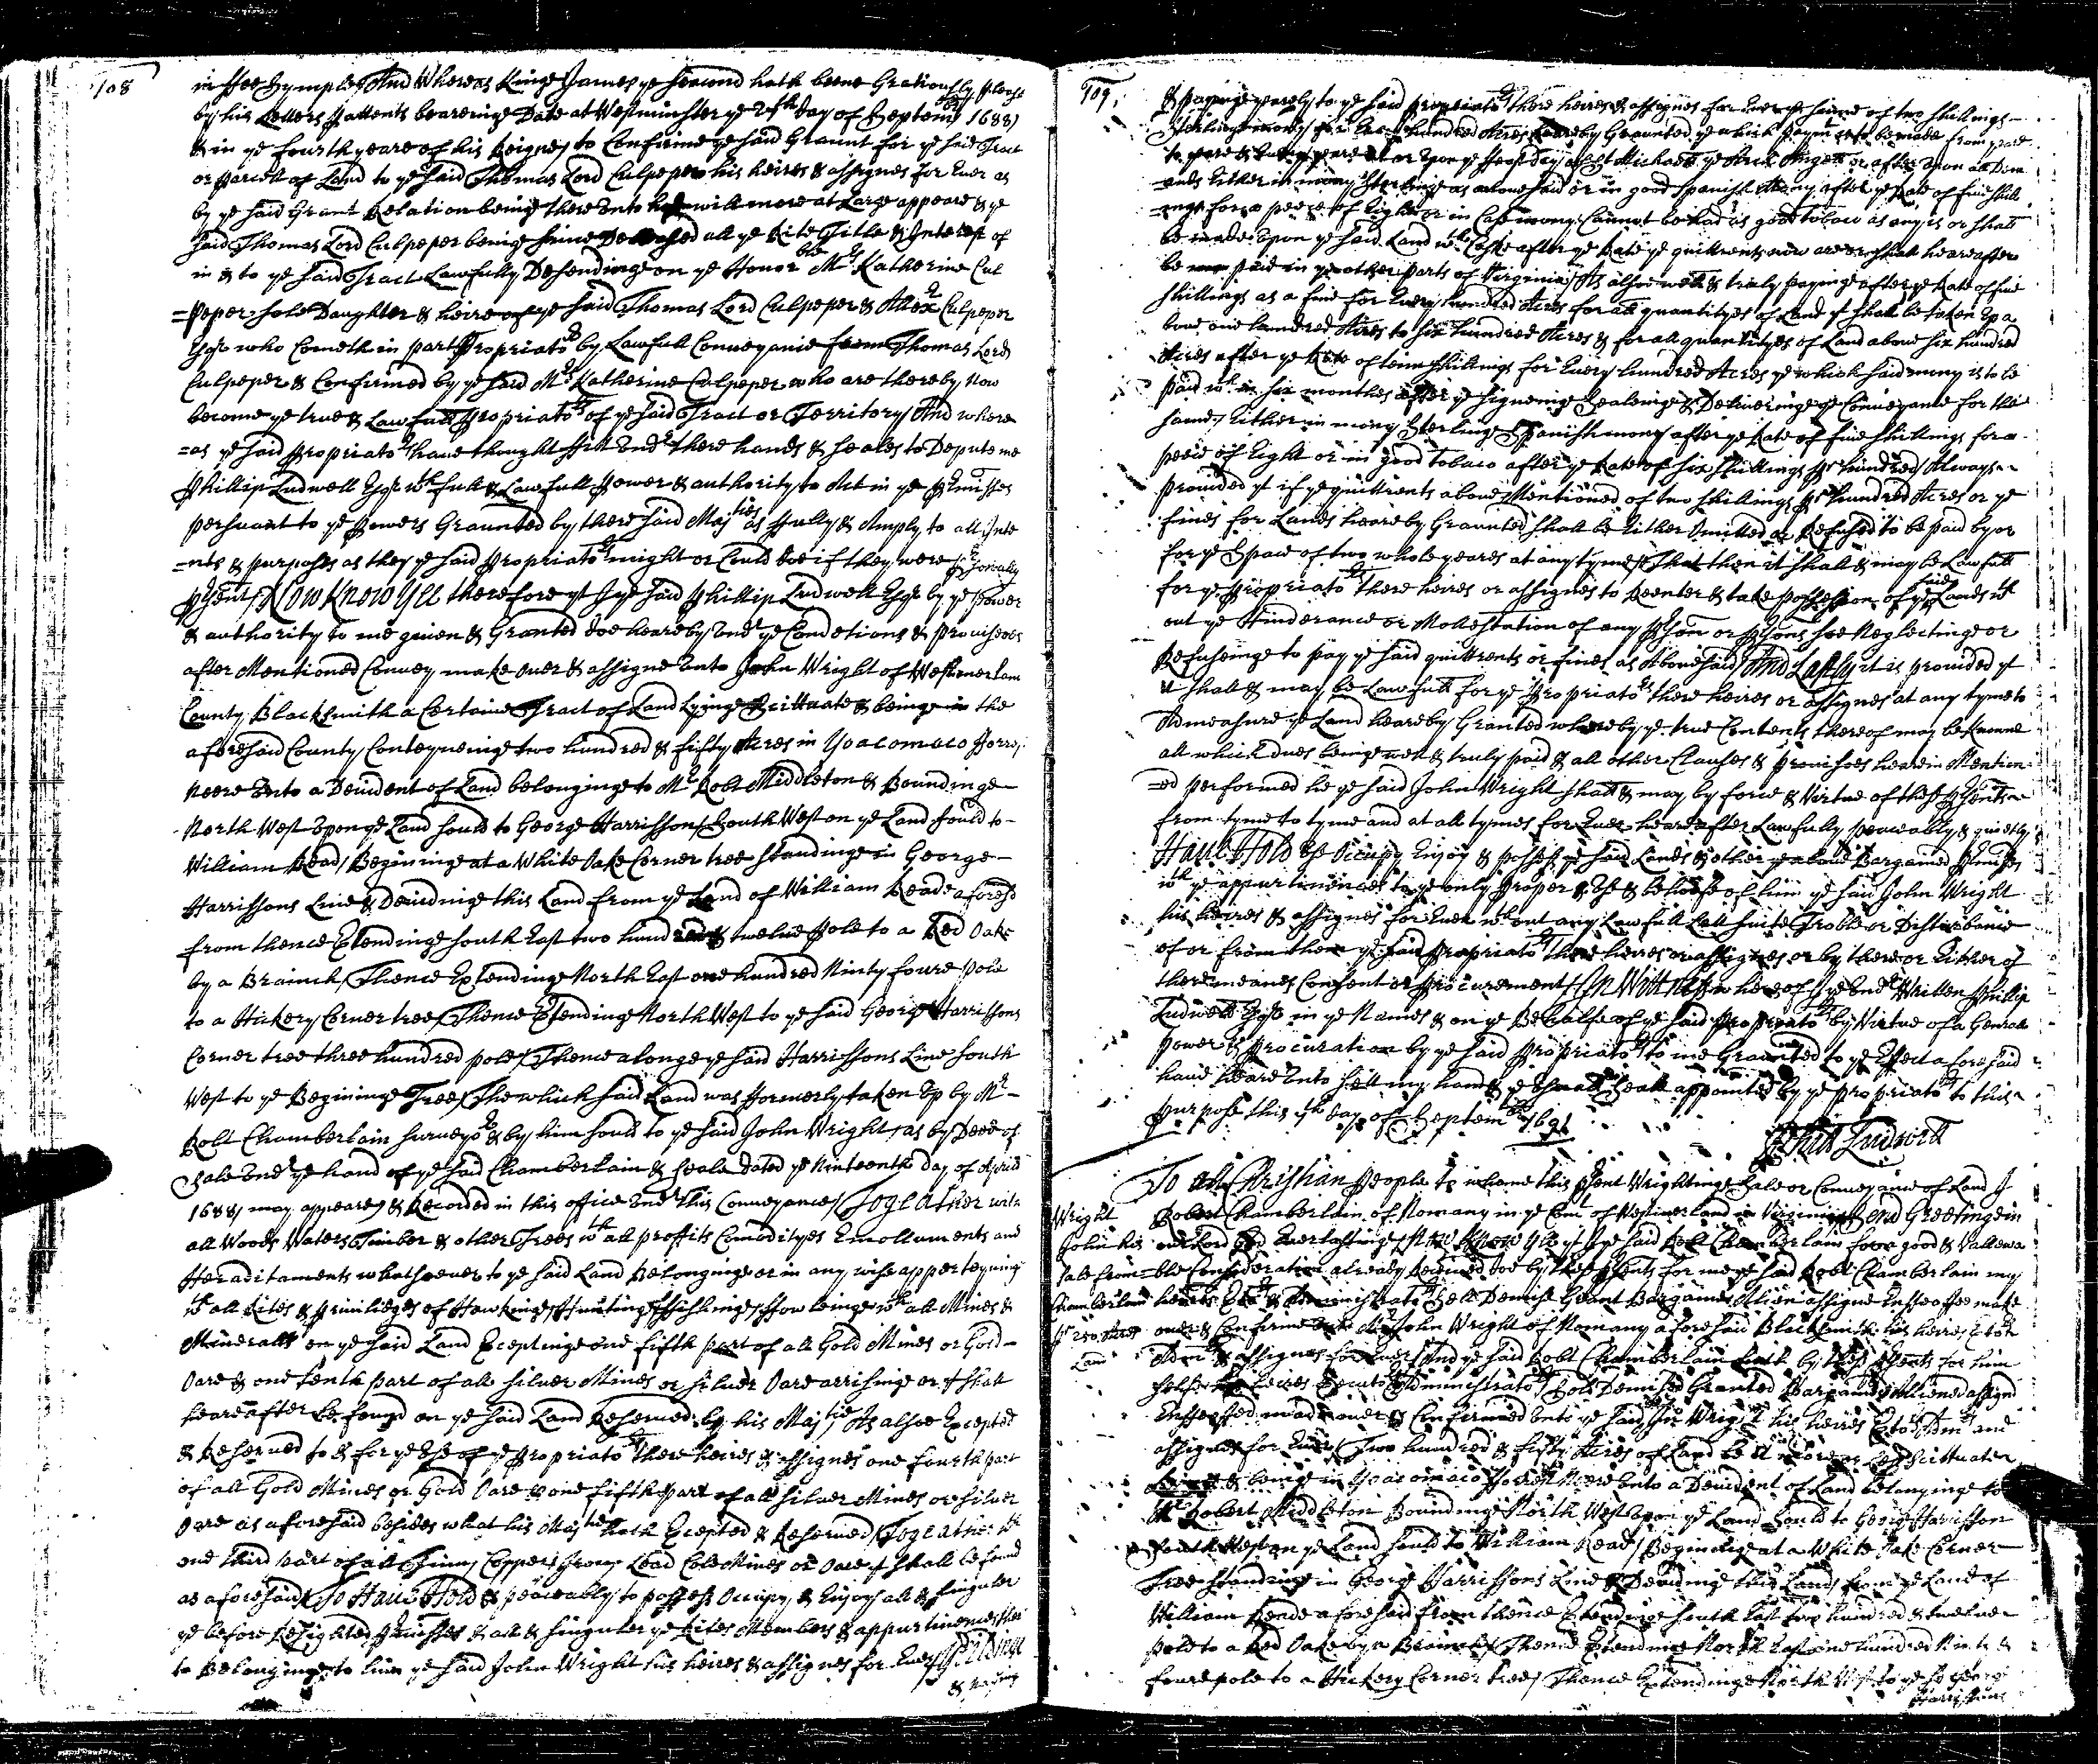 108
in ffee Symple And Whereas Kinge James ye second hath beene Gratiously pleasd
by his Letters Pattents bearringe Date at Westminster ye day of Septembr 1688
& in ye fourth yeare of his Reigne to Confirme ye said Graunt for ye said Tract
or parcell of Land to ye said Thomas Lord Culpeper his heires & assignes for Euer as
by ye said Grant Relation being there unto had will more at Large appeare & ye
said Thomas Lord Culpeper being since Deceased all ye Rite Title & Interest of
in & to ye said Tract Lawfully Desendinge on ye Honorble Mrs Katherine Cul
=peper sole Daughter & heire of ye said Thomas Lord Culpeper & Alexr Culpeper
Esqr who Cometh in part Propriator by Lawfull Conveyance from Thomas Lord
Culpeper & Confirmed by ye said Mrs Katherine Culpeper who are thereby now
become ye true & Lawfull Propriators of ye said Tract or Territory And where
=as ye said Propriators have thought fitt undr there hands & seales to Depute me
Phillip Ludwell Esqr wth full & Lawfull Power & authority to Act in ye Premisses
persuant to ye Powers Graunted by there said Majties as ffully & Amply to all Inte
=nts & purposes as they ye said Propriators might or Could doe if they were personally
Psent, Now Know Yee therefore yt I ye said Phillip Ludwell Esqr by ye Power
& authority to me given & Granted doe heareby undr ye Conditions & Provisoes
after Mentioned Convey make over & assigne unto John Wright of Westmerlan
County Blacksmith a Certaine Tract of Land Lyinge Scittuate & being in the
aforesaid County Conteyneinge two hundred & fifty Acres in Yoacomoco fforrest
neere unto a Devident of Land belonginge to Mr Robt Middleton & Boundinge
North West upon ye Land sould to George Harrisson South West on ye Land sould to
William Read, Begininge at a White Oake Corner tree standinge in George
Harrissons Line & Devidinge this Land from ye Land of William Reade aforesd
from thence Extendinge South East two hundred & twelve Pole to a Red Oake
by a Branch, Thence Extendinge North East one hundred Ninty foure Pole
to a Hickery Corner tree, Thence Extendinge North West to ye said George Harrissons
Corner tree three hundred pole, Thence alonge ye said Harrissons Line South
West to ye Begininge Tree, The which said Land was fformerly taken up by Mr
Robt Chamberlain Surveyor & by him sould to ye said John Wright, as by Deed of
Sale undr ye hand of ye said Chamberlain & seale dated ye Ninteenth day of Aprill
1688, may appeare, & Recorded in this office undr this Conveyance, Togeather with
all Woods Waters Timber & other Trees wth all proffits Comodityes Emolluments and
Heraditaments whatsoever to ye said Land Belonginge or in any wise apperteyning
wth all Rites & Priviledges of Hawkinge Huntinge ffishinge ffowleinge wth all Mines &
Mineralls on ye said Land Exceptinge one fifth part of all Gold Mines or Gold
Oare & one tenth part of all silver Mines or silver Oare arrisinge or yt shall
heareafter be found on ye said Land Reserved by his Majtie As alsoe Excepted
& Reserved to & for ye use of ye Propriators there heires & assignes one fourth part
of all Gold Mines or Gold Oare & one fifth part of all silver Mines or silver
Oare as aforesaid besides what his Majtie hath Excepted & Reserved, Togeather wth
one third part of all Tinn, Copper, Iron, Lead Cole Mines or Oare yt shall be found
as aforesaid, To Have Hold & peaceably to possess Occupy, & Enjoy all & singuler
ye before Premisses & all & singuler ye Rites Members & appurtinences there
to Belonginge to him ye said John Wright his heires & assignes for Ever,
& Paying
109
& Payinge yearely to ye said Propriators there heires & assignes for Ever ye summe of two shillings
Sterlinge mony for Every hundred Acres heareby Graunted ye which paymt is to be made from yeare
to yeare upon ye feast day of St Michaell ye Arch Angell or after upon all Dem
ands Either in mony Sterlinge as abovesaid or in good Spanish Mony after ye Rate of five shill
=ings for a peece of Eight or in Case mony Cannot be had as good Tobaco as any is or shall
be made upon ye said Land wth Caske after ye Rate ye quittrents now are or shall heareafter
be paid in ye other parts of Virginia, As alsoe well & truly payinge after ye Rate of five
shillings as a fine for Every hundred Acres for all quantityes of Land yt shall be taken up a
bove one hundred Acres to six hundred Acres & for all quantityes of Land above six hundred
Acres after ye Rate of tenn shillings for Every hundred Acres ye which said mony is to be
paid wth in six monthes after ye Signeinge Sealeinge & Deliveringe ye Conveyance for the
same, Either in mony Sterling Spanish mony after ye Rate of five shillings for a
peece of Eight or in good Tobaco after ye Rate of six shillings pr hundred, Always
provided yt if ye quittrents above Mentioned of two shillings pr hundred Acres or ye
fines for Lands heareby Graunted shall be Either Omitted or Refused to be Paid by or
for ye Space of two whole yeares at any tyme, That then it shall & may be Lawfull
for ye Propriators there heires or assignes to Reenter & take possession of ye said Lands wth
out ye Hinderance or Mollestation of any Pson or Psons soe Neglectinge or
Refuseinge to pay ye said quittrents or fines as Abovesaid, And Lastly it is provided yt
it shall & may be Lawfull for ye Propriators there heires or assignes at any tyme to
Admeasure ye Land heareby Granted whereby ye true Contents thereof may be knowne
all which dues beinge well & truly paid & all other Clauses & Provisoes hearein Mention
=ed performed he ye said John Wright shall & may by force & Virtue of these Psents
from tyme to tyme and at all tymes for Ever heareafter Lawfully peaceably & quietly
Have Hold Use Occupy Enjoy & possess ye said Lands & other ye above Bargained Premisses
wth ye appurtinences to ye only Proper & Use & behoofe of him ye said John Wright
his heires & assignes for Ever wthout any Lawfull Lett suite Troble or Disturbance
of or from them ye said Propriators there heires or assignes or by there or Either of
there meanes Consent or Procurement, In Wittness whereof I ye undr Written Phillip
Ludwell Esqr in ye Names & on ye Behalfe of ye said Propriators by Virtue of a Generall
power & Procuration by ye said Propriators to me Graunted to ye Effect aforesaid
have heareunto sett my hand & ye small Seale appointed by ye Propriators to this
purpose this day of Septembr 1691
Phill Ludwell
To all Christian People to whome this Psent Wrightinge Sale or Conveyance of Land I
Robert Chamberlain of Nomany in ye County of Westmerland in Virginia Send Greetinge in
our Lord God Everlastinge, Now Know Yee yt I ye said Robt Chamberlain for a good & Vallewa
=ble Consideration already Received doe by these Psents for me ye said Robt Chamberlain my
heires Exrs & Administrators Sell Demise Grant Bargaine Alien assigne Enfeoffee make
over & Confirme unto Mr John Wright of Nomany aforesaid Blacksmith his heires
& assignes for Ever, And ye said Robt Chamberlain hath by these Psents for him
selfe his heires Executors Administrators Sold Demised Granted Bargained Aliened assignd
Enfeoffed made over & Confirmed unto ye said Jno Wright his heires and
assignes for Ever, Two hundred & fifty Acres of Land be it more or less Scittuate
& being in Yoacomoco fforrest Neere unto a Devident of Land belonginge to
Mr Robert Middleton Boundinge North West upon ye Land sould to George Harrisson
South West on ye Land sould to William Read, Begininge at a White Oake Corner
Tree standinge in George Harrissons Line & Devidinge this Lands from ye Land of
William Reade aforesaid from thence Extendinge South East two hundred & twelve
Pole to a Red Oake by a Branch, Thence Extendinge North East one hundred Ninty &
foure pole to a Hickery Corner tree, Thence Extendinge North West to ye sd George
Harrissons
Wright
John his
sale from
Chamberlaine
pr 250 Acres
Land